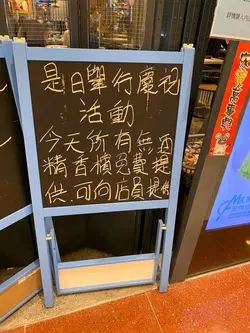 是日舉行慶祝
活動
今天所有無酒
精香檳免費提
供.可向店員提供